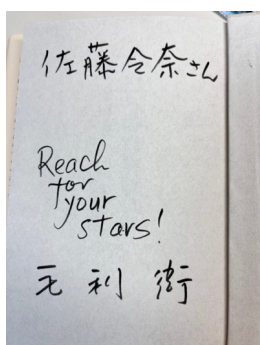 佐藤令奈さん
Reach
for
your
stars!
毛利衛